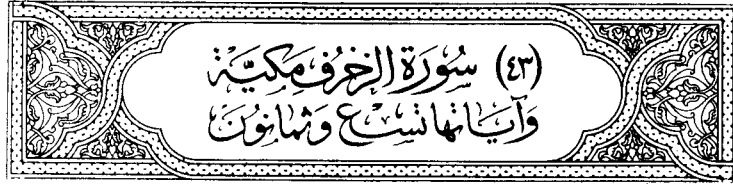 (٤٣) سُورَة الزخرُف مَكيَّة
وَآيَاتها تسْع وَثمانونَ